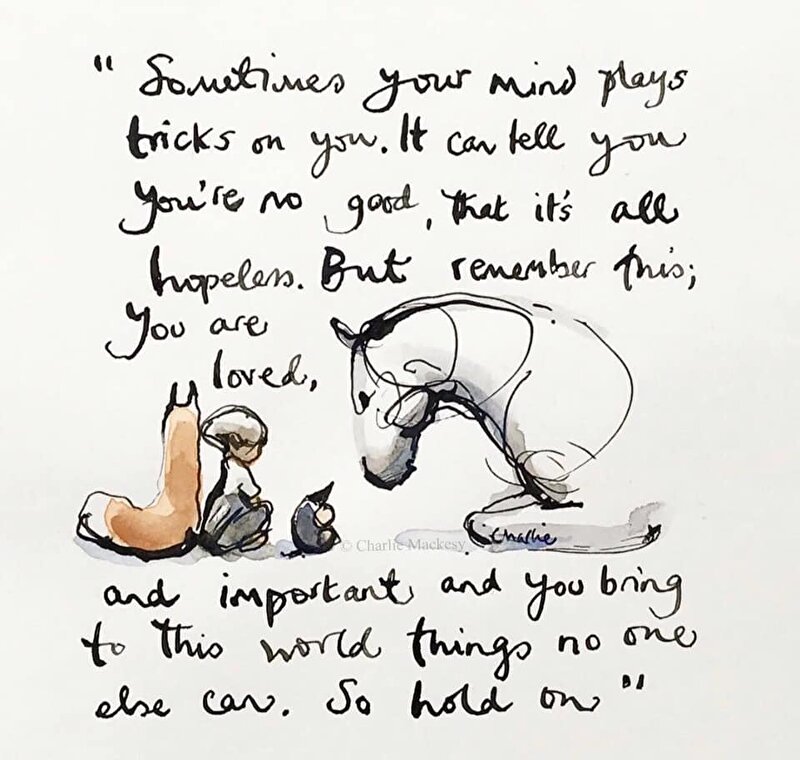 " Sometimes your mind plays
tricks on you. It can tell you
you're no good, that it's all
hopeless. But remember this;
You are
loved,
Charlie
© Charlie Mackesy
and important and you bring
to this world things no one
else can. So hold on "